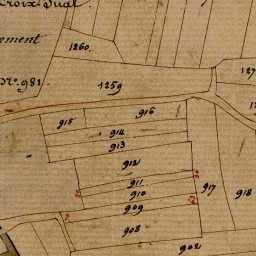 Croix-Dual.
ement
1260.
N.º 981.
1259
127
916
915
914
913
912
911
910
917
909
918
908
902